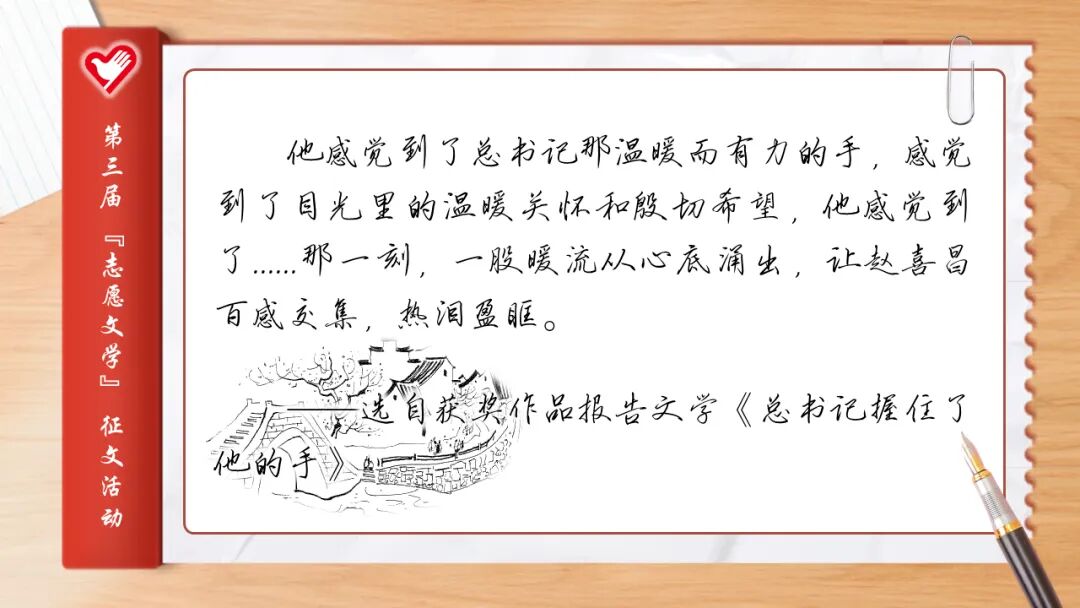 第三届『志愿文学』征文活动
他感觉到了总书记那温暖而有力的手，感觉
到了目光里的温暖关怀和殷切希望，他感觉到
了……那一刻，一股暖流从心底涌出，让赵喜昌
百感交集，热泪盈眶。
——选自获奖作品报告文学《总书记握住了
他的手》